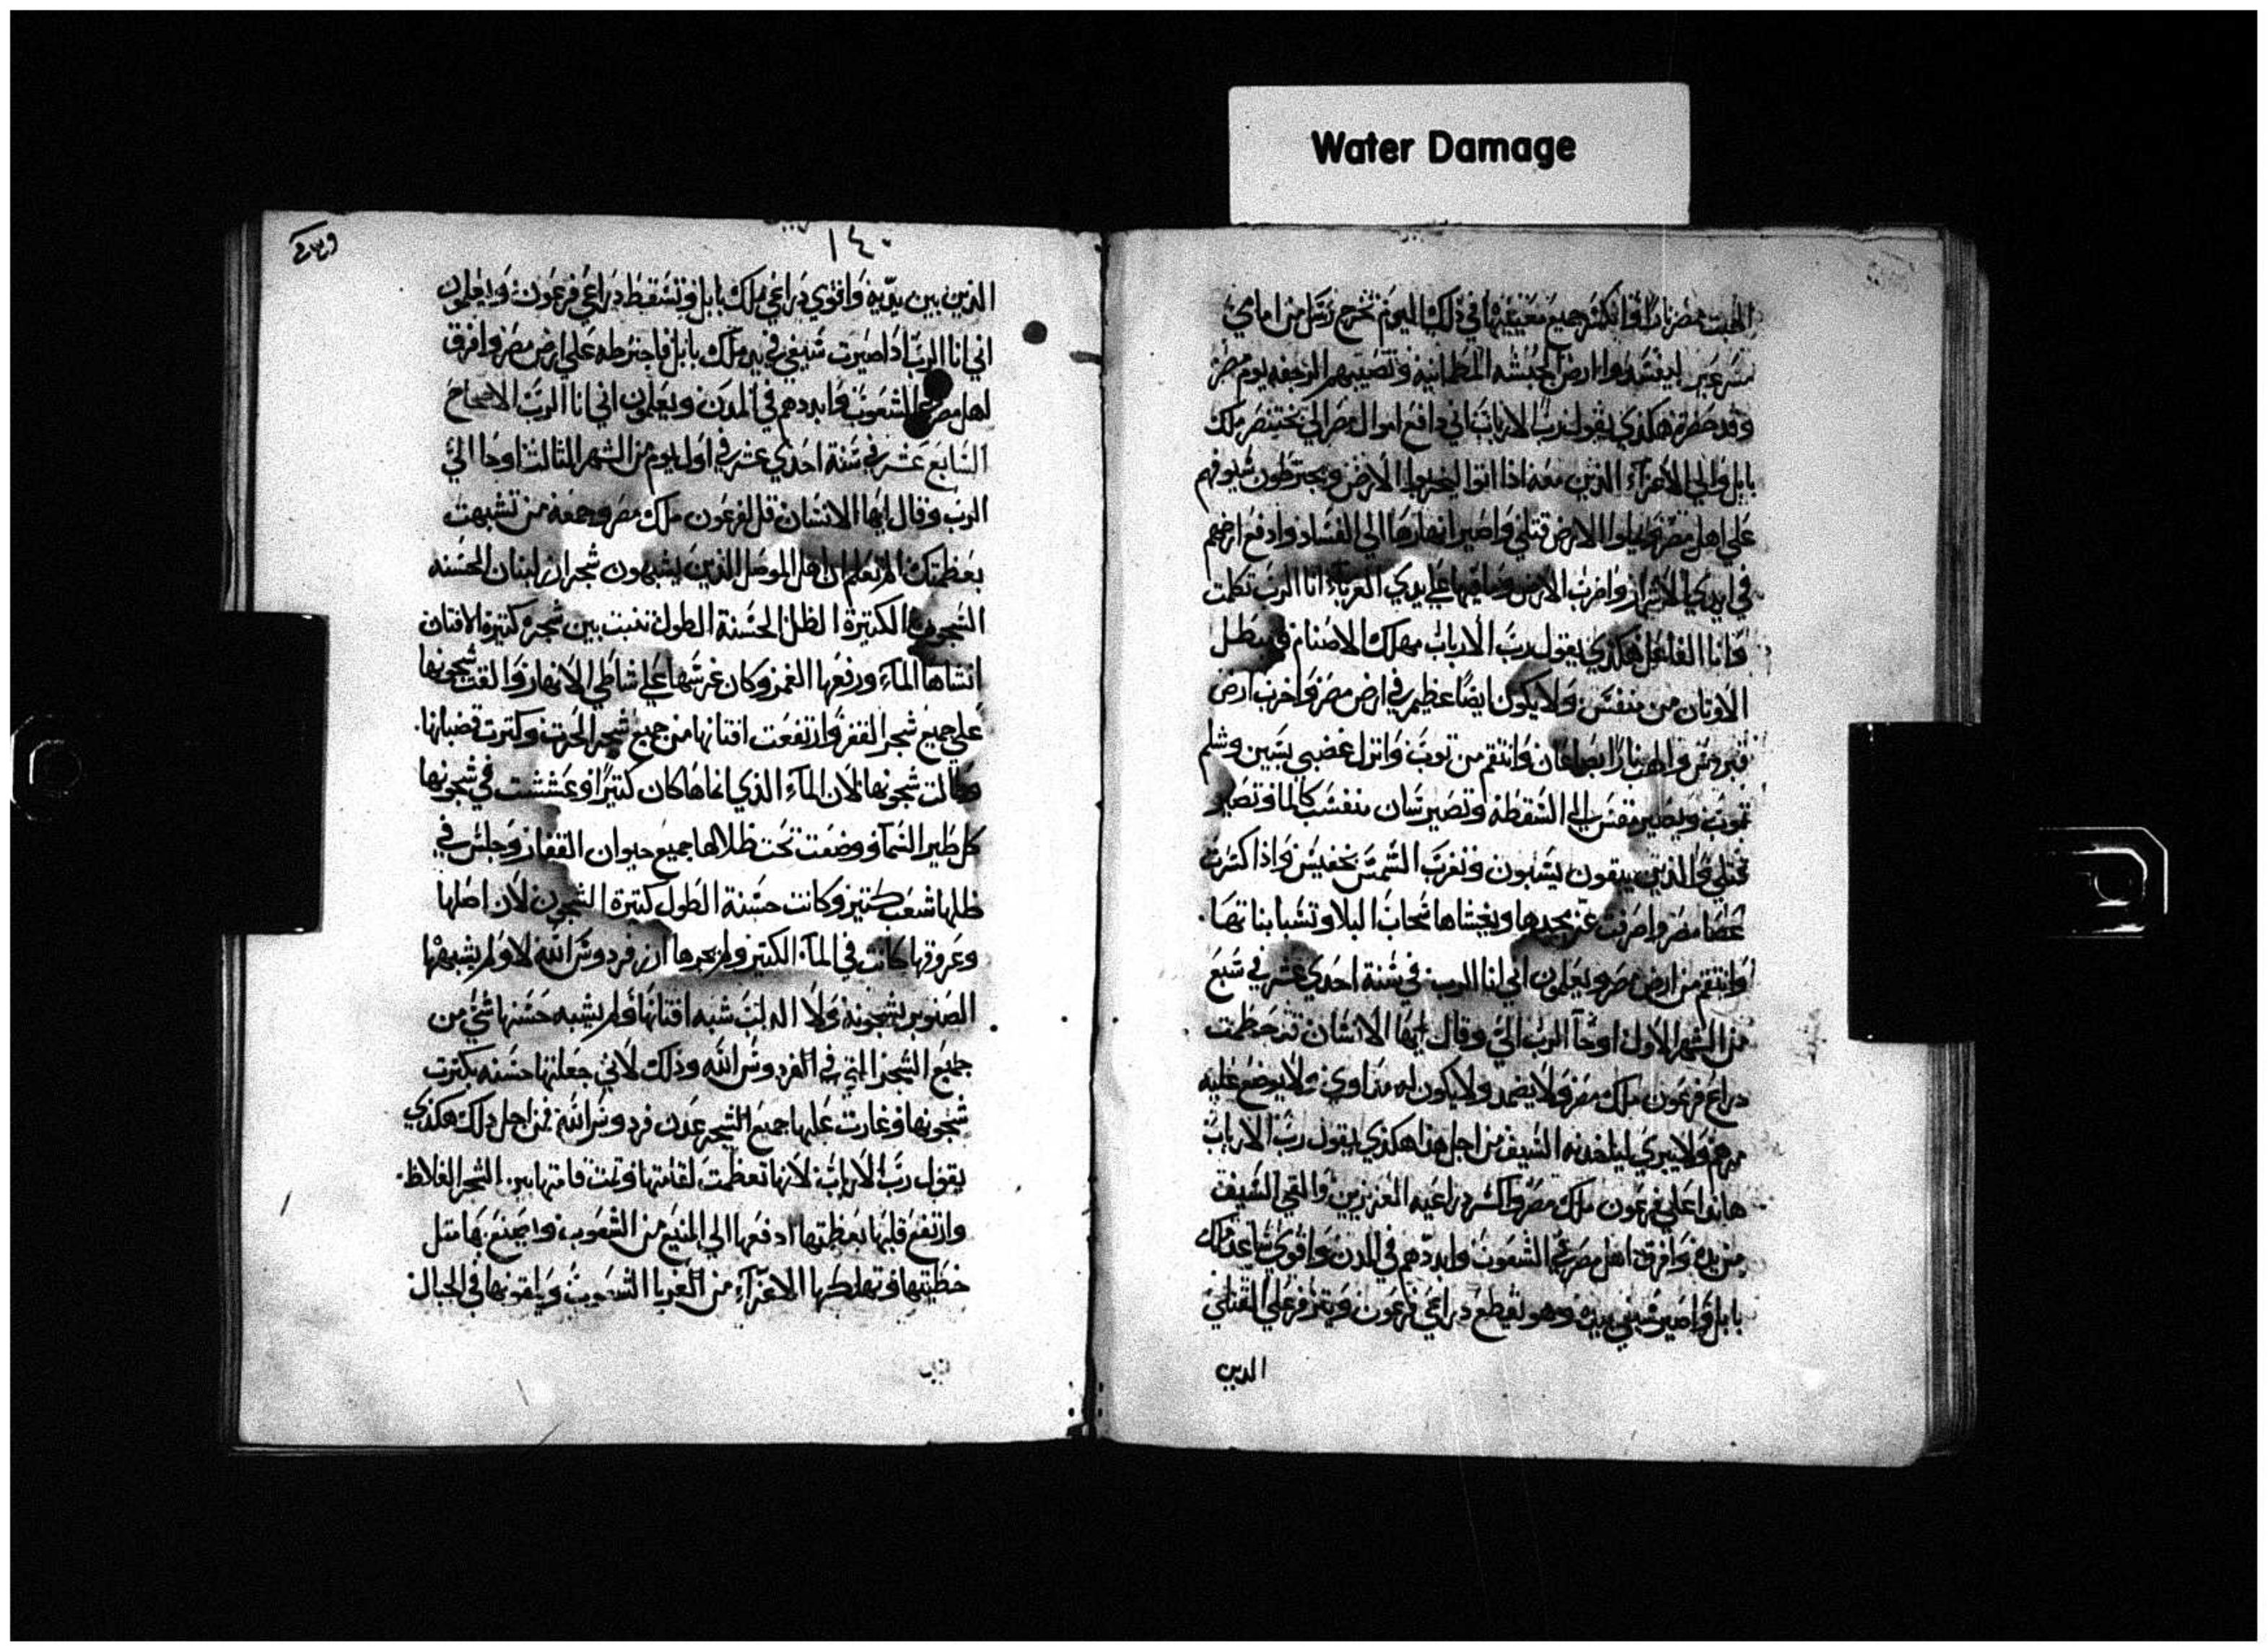 Water Damage
الهبت مصر نارا وانكسر جميع معينيها في ذلك اليوم تخرج رسل من امامي
مسرعين ليفسدوا ارض الحبشه المطمانيه وتصيبهم الرجفه يوم مصر
وقد حضرت هكذي يقول رب الارباب اني دافع اموال مصر الي بختنصر ملك
بابل والي الاعزآء الذين معه اذا اتوا ليخربوا الارض ويخترطون سيوفهم
علي اهل مصر ويملوا الارض قتلي واصير انهارها الي الفساد وادفع ارضهم
في ايدي الاشرار واخرب الارض وما فيها علي يدي الغرباء انا الرب تكلمت
وانا الفاعل هكذي يقول رب الارباب مهلك الاصنام ومبطل
الاوثان من منفس ولا يكون ايضا عظيم في ارض مصر واخرب ارض
فتروس والهب نارا بصاعان وانتقم من نوب وانزل غضبي بسين وسلم
نوب ويصير مقس الي السقطه وتصير سان منفس كالما وتصير
قتلي والذين يبقون يسبون وتغرب الشمس بتحفيس واذا كسرت
عصا مصر واصرفت عز مجدها ويغشاها سحاب البلا وتسبا بناتها
وانتقم من ارض مصر ويعلمون اني انا الرب في سنة احدي عشر في سبع
من الشهر الاول اوحآ الرب الي وقال ايها الانسان قد حطمت
دراع فرعون ملك مصر ولا يضمد ولا يكون له مداوي ولا يوضع عليه
مرهم ولا يبري لياخذ به السيف من اجل هذا هكذي يقول رب الارباب
هانذا علي فرعون ملك مصر واكسر دراعيه العزيزين والقي السيف
من يده وافرق اهل مصر في الشعوب وابددهم في المدن واقوي ساعد ملك
بابل واصير سيفي بيده وهو يقطع دراعي فرعون ويتزفر علي القتلي
الدين
١٤٠
الذين بين يديه واقوي دراعي ملك بابل وتسقط دراعي فرعون ويعلمون
اني انا الرب اذا صيرت سيفي في يد ملك بابل فاخترطه علي ارض مصر وافرق
اهل مصر في الشعوب وابددهم في المدن ويعلمون اني انا الرب الاصحاح
السابع عشر في سنة احدي عشر في اول يوم من الشهر الثالث اوحا الي
الرب وقال ايها الانسان قل لفرعون ملك مصر وجمعه من تشبهت
بعظمتك الم تعلم ان اهل الموصل الذين يشبهون شجر ارز لبنان الحسنه
الشجون الكتيرة الظل الحسنة الطول تنبت بين شجره كتيرة الافنان
انشاها المآء ورفعها الغمر وكان غرسها علي شاطي الانهار والقت شجونها
علي جميع شجر القفر وارتفعت افنانها من جميع شجر الحرث وكترت قضبانها
وطالت شجونها لان المآء الذي انماها كان كتيرا وعششت في شجونها
كل طير السمآ ووضعت تحت ظلالها جميع حيوان القفار وجلس في
ظلها شعب كتير وكانت حسنة الطول كتيرة الشجون لان اصلها
وعروقها كانت في المآ الكتير ولم يحرها ارز فردوس الله لا ولم يشبهها
الصنوبر بشجونه ولا الدلب شبه افنانها ولم يشبه حسنها شي من
جميع الشجر التي في الفردوس الله وذلك لاني جعلتها حسنه بكترت
شجونها وغارت عليها جميع الشجر عدن فردوس الله فمن اجل ذلك هكذي
يقول رب الارباب لانها تعظمت لقامتها ونمت قامتها بين الشجر الغلاظ
وارتفع قلبها بعظمتها ادفعها الي المنيع من الشعوب وايضنع بها متل
خطيتها وتهلكها الاعزآء من الغربا الشعوب ويلقونها في الجبال